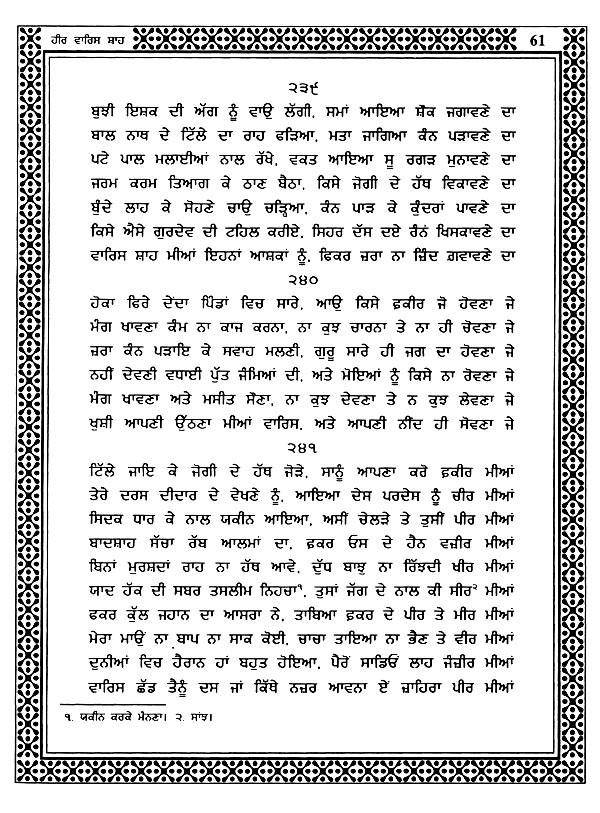 ਹੀਰ ਵਾਰਿਸ ਸ਼ਾਹ 61
੨੩੯
ਬੁਝੀ ਇਸ਼ਕ ਦੀ ਅੱਗ ਨੂੰ ਵਾਉ ਲੱਗੀ, ਸਮਾਂ ਆਇਆ ਸ਼ੌਕ ਜਗਾਵਣੇ ਦਾ
ਬਾਲ ਨਾਥ ਦੇ ਟਿੱਲੇ ਦਾ ਰਾਹ ਫੜਿਆ, ਮਤਾ ਜਾਗਿਆ ਕੰਨ ਪੜਾਵਣੇ ਦਾ
ਪਟੇ ਪਾਲ ਮਲਾਈਆਂ ਨਾਲ ਰੱਖੇ, ਵਕਤ ਆਇਆ ਸੂ ਰਗੜ ਮੁਨਾਵਣੇ ਦਾ
ਜਰਮ ਕਰਮ ਤਿਆਗ ਕੇ ਠਾਣ ਬੈਠਾ, ਕਿਸੇ ਜੋਗੀ ਦੇ ਹੱਥ ਵਿਕਾਵਣੇ ਦਾ
ਬੁੰਦੇ ਲਾਹ ਕੇ ਸੋਹਣੇ ਚਾਉ ਚੜ੍ਹਿਆ, ਕੰਨ ਪਾੜ ਕੇ ਕੁੰਦਰਾਂ ਪਾਵਣੇ ਦਾ
ਕਿਸੇ ਐਸੇ ਗੁਰਦੇਵ ਦੀ ਟਹਿਲ ਕਰੀਏ, ਸਿਹਰ ਦੱਸ ਦਏ ਰੰਨਂ ਖਿਸਕਾਵਣੇ ਦਾ
ਵਾਰਿਸ ਸ਼ਾਹ ਮੀਆਂ ਇਹਨਾਂ ਆਸ਼ਕਾਂ ਨੂੰ, ਫਿਕਰ ਜ਼ਰਾ ਨਾ ਜ਼ਿੰਦ ਗਵਾਵਣੇ ਦਾ
੨੪੦
ਹੋਕਾ ਫਿਰੇ ਦੇਂਦਾ ਪਿੰਡਾਂ ਵਿਚ ਸਾਰੇ, ਆਉ ਕਿਸੇ ਫ਼ਕੀਰ ਜੋ ਹੋਵਣਾ ਜੇ
ਮੰਗ ਖਾਵਣਾ ਕੰਮ ਨਾ ਕਾਜ ਕਰਨਾ, ਨਾ ਕੁਝ ਚਾਰਨਾ ਤੇ ਨਾ ਹੀ ਚੋਵਣਾ ਜੇ
ਜ਼ਰਾ ਕੰਨ ਪੜਾਇ ਕੇ ਸਵਾਹ ਮਲਣੀ, ਗੁਰੂ ਸਾਰੇ ਹੀ ਜਗ ਦਾ ਹੋਵਣਾ ਜੇ
ਨਹੀਂ ਦੇਵਣੀ ਵਧਾਈ ਪੁੱਤ ਜੰਮਿਆਂ ਦੀ, ਅਤੇ ਮੋਇਆਂ ਨੂੰ ਕਿਸੇ ਨਾ ਰੋਵਣਾ ਜੇ
ਮੰਗ ਖਾਵਣਾ ਅਤੇ ਮਸੀਤ ਸੌਣਾ, ਨਾ ਕੁਝ ਦੇਵਣਾ ਤੇ ਨ ਕੁਝ ਲੇਵਣਾ ਜੇ
ਖੁਸ਼ੀ ਆਪਣੀ ਉੱਠਣਾ ਮੀਆਂ ਵਾਰਿਸ, ਅਤੇ ਆਪਣੀ ਨੀਂਦ ਹੀ ਸੋਵਣਾ ਜੇ
੨੪੧
ਟਿੱਲੇ ਜਾਇ ਕੇ ਜੋਗੀ ਦੇ ਹੱਥ ਜੋੜੇ, ਸਾਨੂੰ ਆਪਣਾ ਕਰੋ ਫ਼ਕੀਰ ਮੀਆਂ
ਤੇਰੇ ਦਰਸ ਦੀਦਾਰ ਦੇ ਵੇਖਣੇ ਨੂੰ, ਆਇਆ ਦੇਸ ਪਰਦੇਸ ਨੂੰ ਚੀਰ ਮੀਆਂ
ਸਿਦਕ ਧਾਰ ਕੇ ਨਾਲ ਯਕੀਨ ਆਇਆ, ਅਸੀਂ ਚੇਲੜੇ ਤੇ ਤੁਸੀਂ ਪੀਰ ਮੀਆਂ
ਬਾਦਸ਼ਾਹ ਸੱਚਾ ਰੱਬ ਆਲਮਾਂ ਦਾ, ਫ਼ਕਰ ਓਸ ਦੇ ਹੈਨ ਵਜ਼ੀਰ ਮੀਆਂ
ਬਿਨਾਂ ਮੁਰਸ਼ਦਾਂ ਰਾਹ ਨਾ ਹੱਥ ਆਵੇ, ਦੁੱਧ ਬਾਝੁ ਨਾ ਰਿੱਝਦੀ ਖੀਰ ਮੀਆਂ
ਯਾਦ ਹੱਕ ਦੀ ਸਬਰ ਤਸਲੀਮ ਨਿਹਚਾ¹, ਤੁਸਾਂ ਜੱਗ ਦੇ ਨਾਲ ਕੀ ਸੀਰ² ਮੀਆਂ
ਫਕਰ ਕੁੱਲ ਜਹਾਨ ਦਾ ਆਸਰਾ ਨੇ, ਤਾਬਿਆ ਫ਼ਕਰ ਦੇ ਪੀਰ ਤੇ ਮੀਰ ਮੀਆਂ
ਮੇਰਾ ਮਾਉਂ ਨਾ ਬਾਪ ਨਾ ਸਾਕ ਕੋਈ, ਚਾਚਾ ਤਾਇਆ ਨਾ ਭੈਣ ਤੇ ਵੀਰ ਮੀਆਂ
ਦੁਨੀਆਂ ਵਿਚ ਹੈਰਾਨ ਹਾਂ ਬਹੁਤ ਹੋਇਆ, ਪੈਰੋਂ ਸਾਡਿਓਂ ਲਾਹ ਜੰਜ਼ੀਰ ਮੀਆਂ
ਵਾਰਿਸ ਛੱਡ ਤੈਨੂੰ ਦਸ ਜਾਂ ਕਿੱਥੇ ਨਜ਼ਰ ਆਵਨਾ ਏਂ ਜ਼ਾਹਿਰਾ ਪੀਰ ਮੀਆਂ
੧. ਯਕੀਨ ਕਰਕੇ ਮੰਨਣਾ। ੨. ਸਾਂਝ।